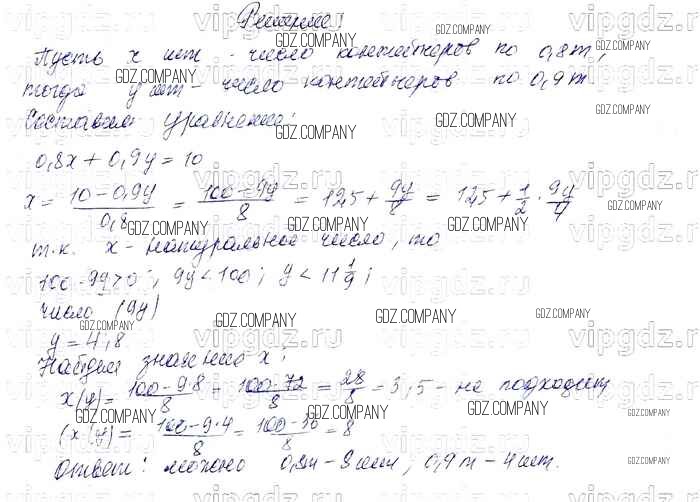 Решение:
Пусть x шт - число контейнеров по 0,8т,
тогда y шт - число контейнеров по 0,9т
Составим уравнение:
0,8x + 0,9y = 10
x = (10-0,9y)/0,8 = (100-9y)/8 = 12,5 + 9y/8 = 12,5 + 1/2 · 9y/4
т.к. x - натуральное число, то
100-9y>0; 9y<100; y<11 1/9;
число (9y)
y = 4,8
Найдем значение x:
x(y) = (100-9·8)/8 = (100-72)/8 = 28/8 = 3,5 - не подходит
(x(y) = (100-9·4)/8 = (100-36)/8 = 8
Ответ: можно 0,8т - 8 шт, 0,9т - 4 шт.
GDZ.COMPANY
vipgdz.ru